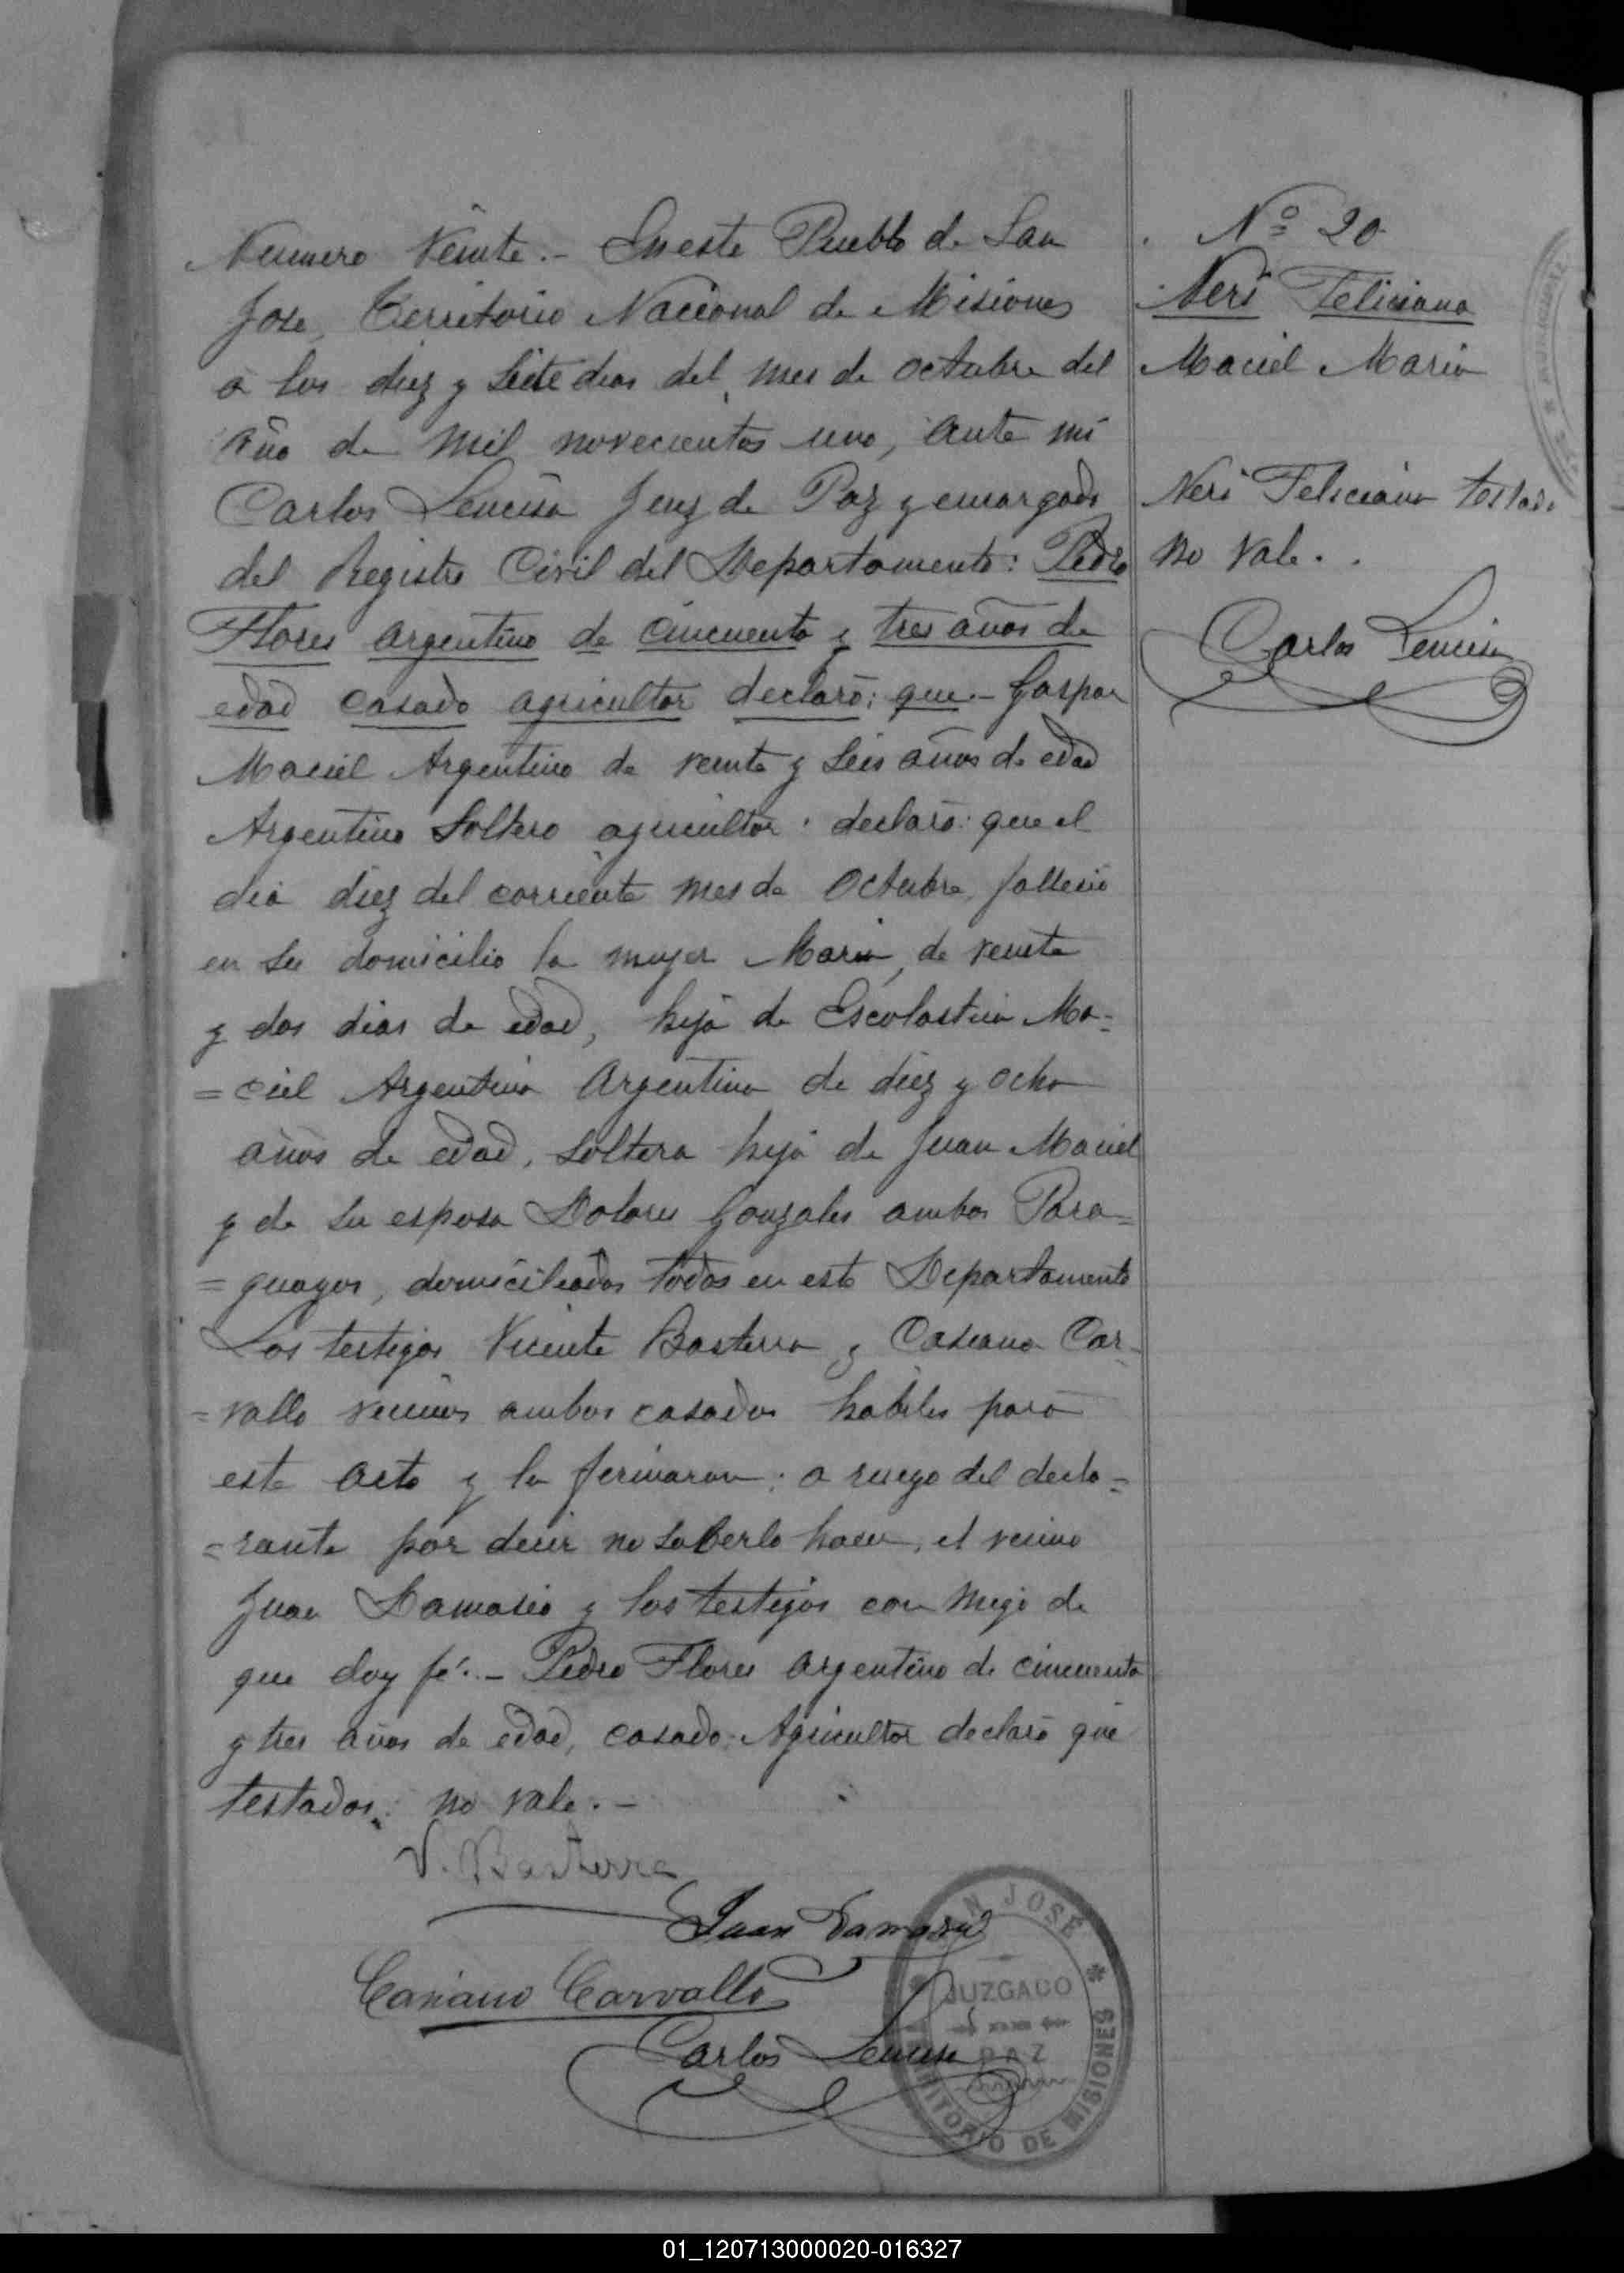 Numero Veinte.- En este Pueblo de San
Jose, Territorio Nacional de Misiones
a los diez y siete dias del mes de Octubre del
año de mil novecientos uno, ante mi
Carlos Lencisa Juez de Paz y encargado
del Registro Civil del Departamento: Pedro
Flores argentino de cincuenta y tres años de
edad casado agricultor declaró: que.- Gaspar
Maciel Argentino de veinte y seis años de edad
Argentino Soltero agricultor. declaró: que el
dia diez del corriente mes de Octubre, fallecio
en su domicilio la mujer Maria, de veinte
y dos dias de edad, hija de Escolastica Ma-
=ciel Argentina Argentina de diez y ocho
años de edad, soltera hija de Juan Maciel
y de su esposa Dolores Gonzales ambos Para=
=guayos, domiciliados todos en este Departamento
Los testigos Vicente Basterra y Casiano Car-
=vallo vecinos ambos casados habiles para
este acto y la firmaron: a ruego del decla=
=rante por decir no saberlo hacer, el vecino
Juan Damasio y los testigos con migo de
que doy fé.- Pedro Flores argentino de cincuenta
y tres años de edad, casado: Agricultor declaró que
testados: no vale.-
V. Basterra
Juan Damasio
Casiano Carvallo
Carlos Lencisa
SAN JOSÉ
JUZGADO
DE
PAZ
TERRITORIO DE MISIONES
Nº 20
Neri Feliciana
Maciel Maria
Neri Feliciana testado
no vale.
Carlos Lencisa
01_120713000020-016327